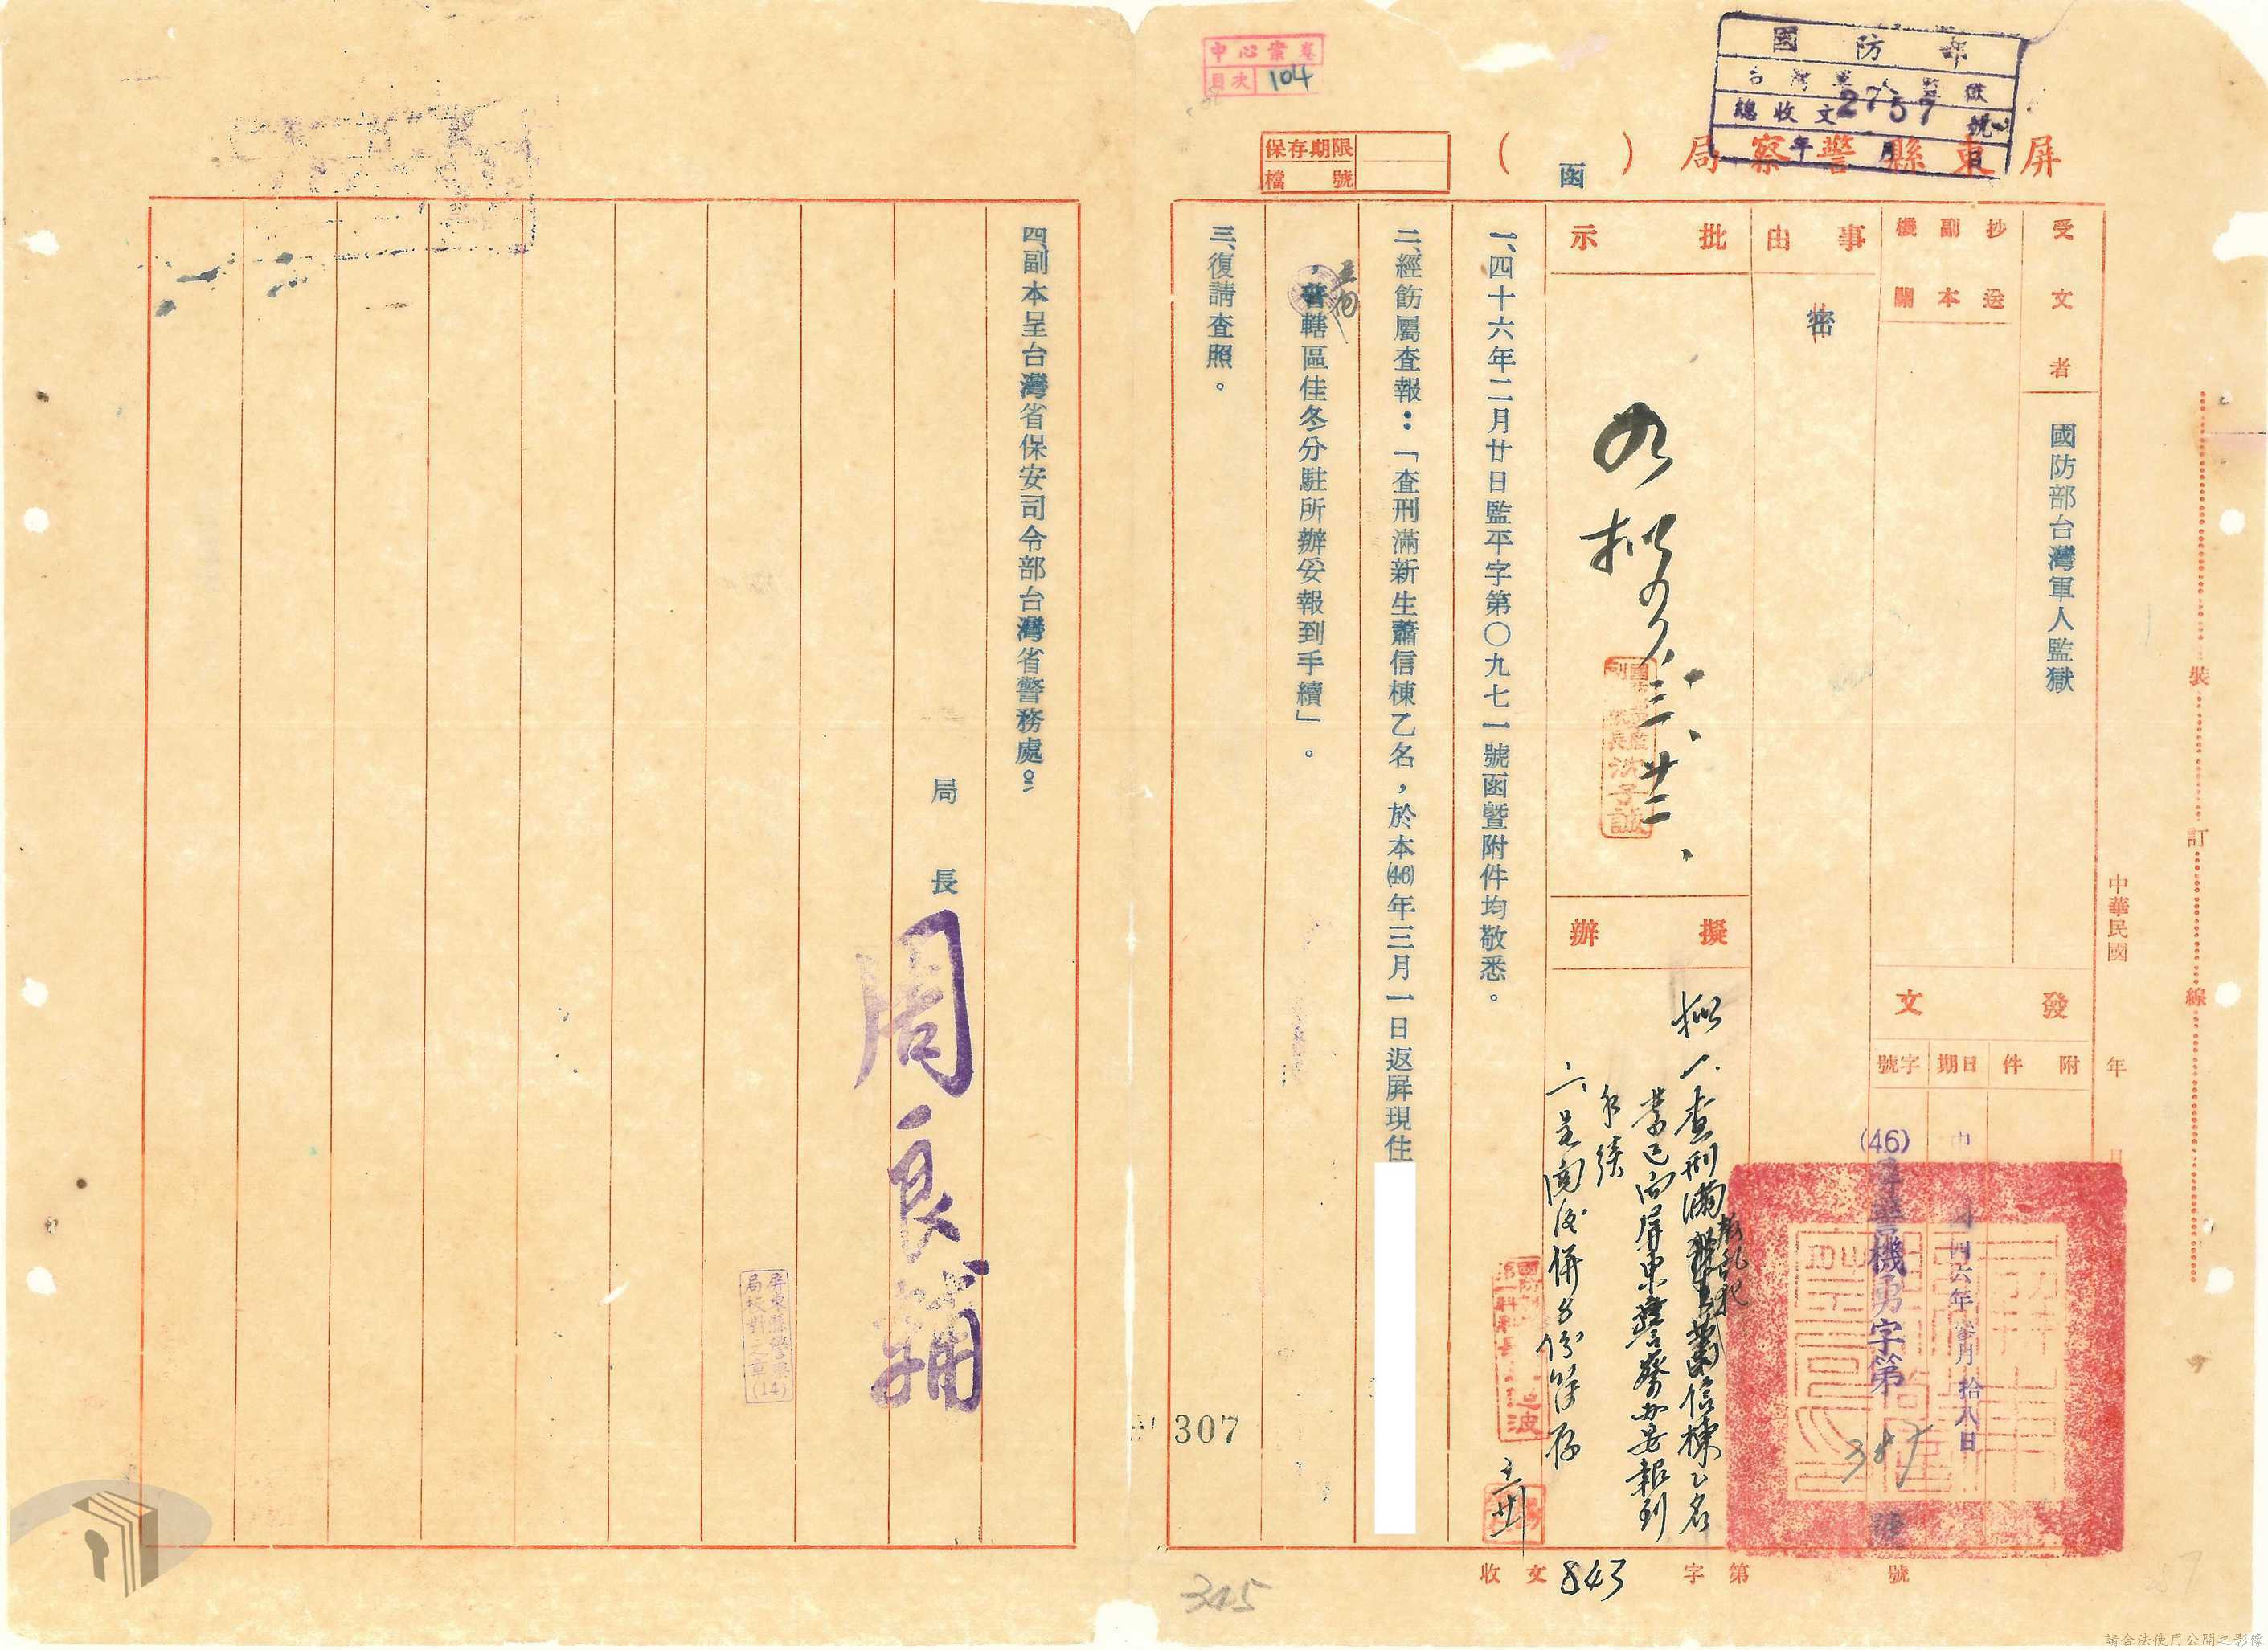 中心案卷
目次 104
國防部
台灣軍人監獄
總收文2757號
年 月 日
屏東縣警察局（函）
保存期限
檔 號
受文者
國防部台灣軍人監獄
抄送
副本
機關
事由
密
批示
如擬
三、廿二、
擬辦
擬
一、查刑滿叛亂犯蕭信棟乙名
業已向屏東警察局辦妥報到
手續
二、呈閱後併案
發文
附件
日期
字號
中華民國 年 月
四六年參月拾八日
(46)屏警機勇字第
387
號
一、四十六年二月廿日監平字第〇九七一號函暨附件均敬悉。
二、經飭屬查報：「查刑滿新生蕭信棟乙名，於本(46)年三月一日返屏現住
，並向轄區佳冬分駐所辦妥報到手續」。
三、復請查照。
四、副本呈台灣省保安司令部台灣省警務處。
局長 周良輔
屏東縣警察
局校對之章(14)
307
345
收文 843 字第 號
裝 訂 線
請合法使用公開之影像